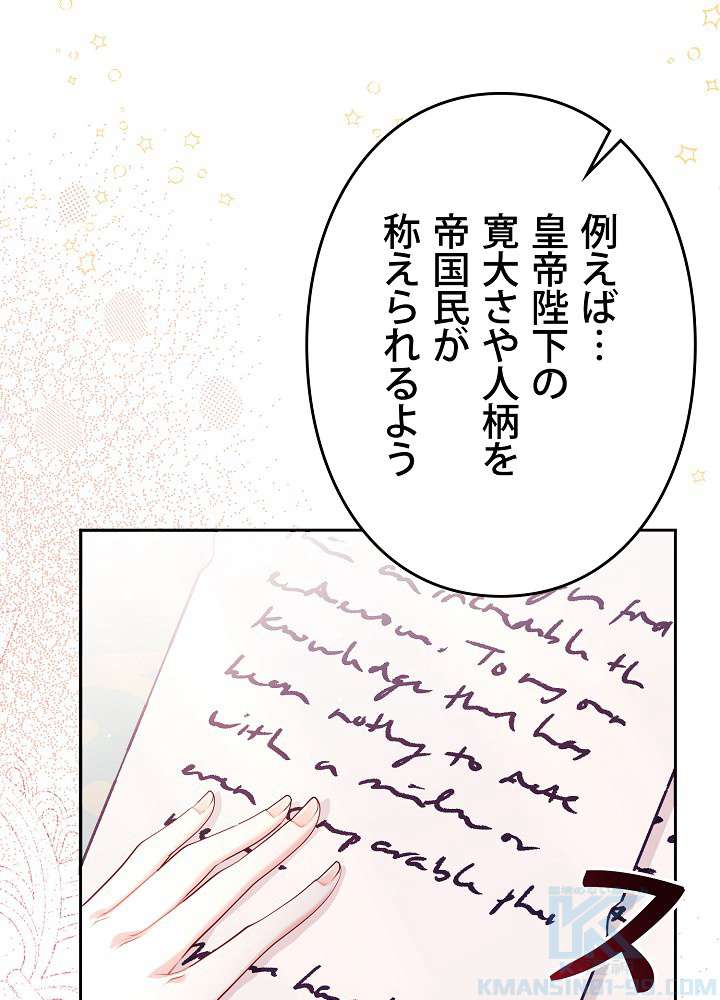 例えば…
皇帝陛下の
寛大さや人柄を
帝国民が
称えられるよう
an incredible th
unknown. To my own
knowledge that has
been nothing to
with a similar or
even comparable
ヌ
KMANSIN